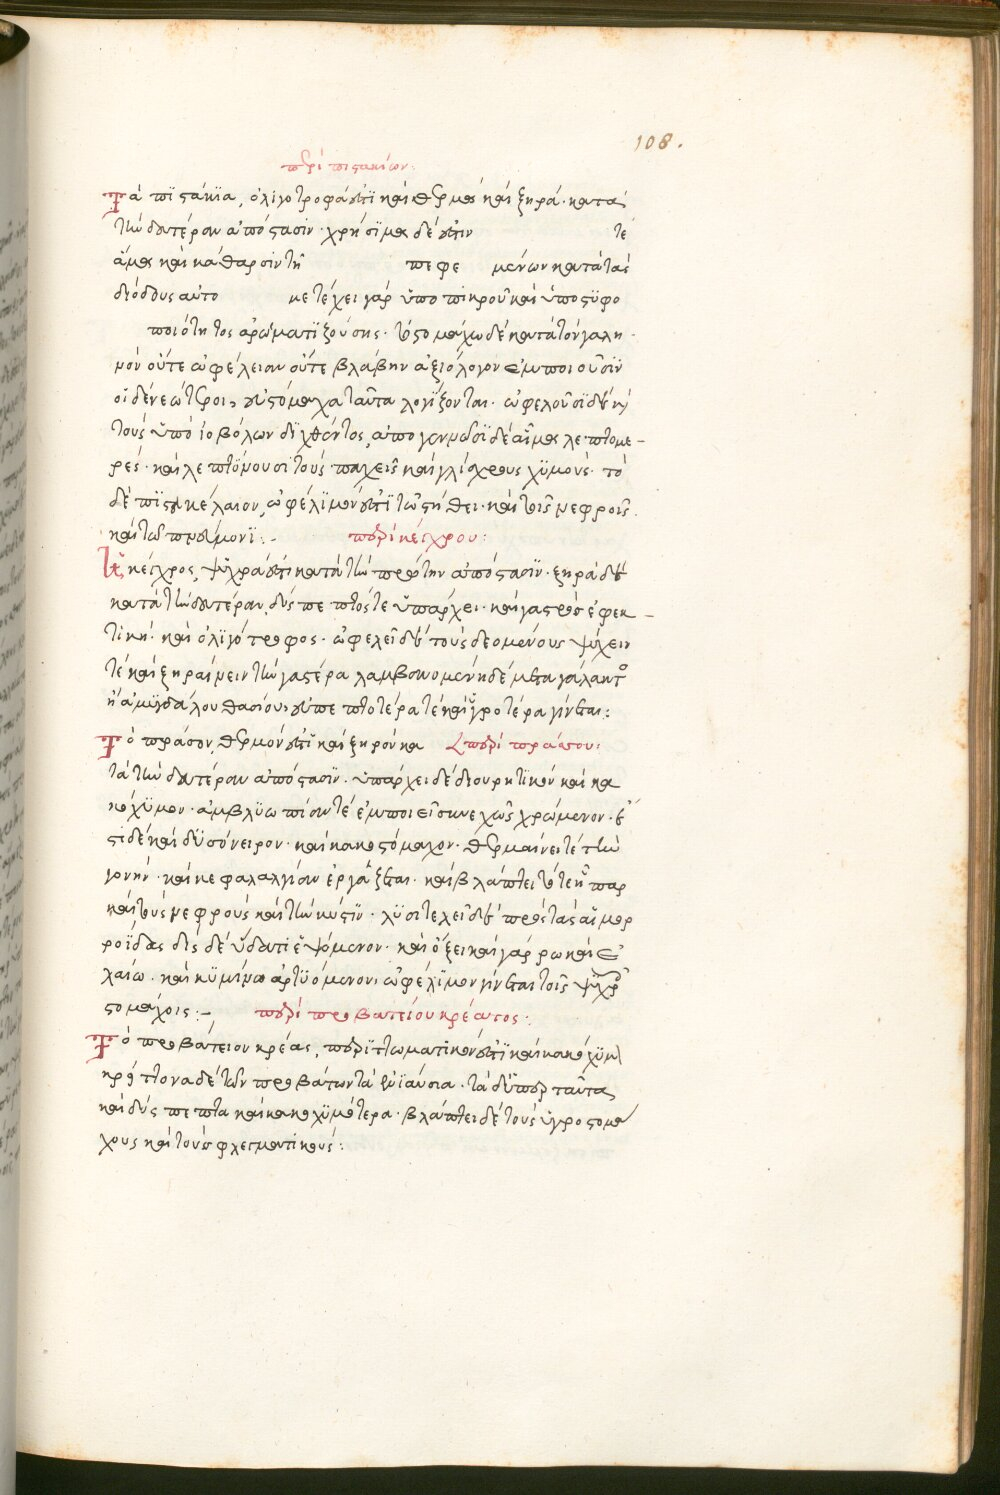 108.
περὶ πιστακίων:
Τὰ πϊστάκϊα, ὀλιγοτροφά ἐστϊ καὶ θερμὰ καὶ ξηρά· κατὰ
τὴν δευτέραν ἀπόστασιν· χρήσϊμα δέ ἐστιν τε
ἅμα καὶ κάθαρσιν τῆ πεφε μένων κατὰ τὰς
διόδους αὐτο μετέχει γὰρ ὑπο πίκρου καὶ ὑποστϋφο
ποιότητος ἀρωματϊζούσης· στομάχω δὲ κατὰ τὸν γαλη
μὸν οὔτε ὠφέλειαν οὔτε βλάβην ἀξιόλογον ἐμποιοῦσϊν
οἱ δὲ νεώτεροι, εὐστόμαχα ταῦτα λογΐζονται· ὠφελοῦσϊ δὲ κ
τοὺς ὑπὸ ἰοβόλων δϊχθέντας, ἀπογεννῶσϊ δὲ αἷμα λεπτομε-
ρές· καὶ λεπτΰνουσϊ τοὺς παχεῖς καὶ γλίσχρους χϋμοὺς· τὸ
δὲ πϊστακέλαιον, ὠφέλϊμόν ἐστϊ τῶ στήθει· καὶ τοῖς νεφροῖς
καὶ τῶ πνεύμονϊ:- περὶ κέγχρου:
Ἡ κέγχρος, ψϋχρά ἐστι κατὰ τὴν πρώτην ἀπόστασϊν· ξηρὰ δὲ
κατὰ τὴν δευτέραν, δύσπεπτός τε ὑπάρχει· καὶ γαστρὸς ἐφεκ-
τικὴ· καὶ ὀλϊγότροφος· ὠφελεῖ δὲ τοὺς δεομένους ψύχειν
τὲ καὶ ξηραίνειν τὴν γαστέρα λαμβανομένη δὲ μετα γάλακτο
ἢ ἀμϋγδάλου θασίου, εὐπεπτοτέρα τὲ καὶ ὑγροτέρα γίνεται:
Τὸ πράσον, θερμόν ἐστϊ καὶ ξηρὸν κα περὶ πράσου:
τὰ τὴν δευτέραν ἀπόστασϊν· ὑπάρχει δὲ διουρητϊκὸν καὶ κα
κόχϋμον· ἀμβλϋωπίαν τὲ ἐμποιεῖ συνεχῶς χρώμενον· ἔ
στι δὲ καὶ δϋσόνειρον· καὶ κακοστόμαχον· θερμαίνει τὲ τὴν
γονήν· καὶ κεφαλαλγίαν ἐργάζεται· καὶ βλάπτει τό τε ἧπαρ
καὶ τοὺς νεφροὺς καὶ τὴν κύστϊν· λϋσιτελεῖ δὲ πρὸς τὰς αἱμορ
ροΐδας δὶς δὲ ὕδατι ἑψόμενον· καὶ ὄξει καὶ γάρω καὶ ἐ
λαίω· καὶ κϋμίνω ἀρτϋόμενον, ὠφέλϊμον γίνεται τοῖς ψϋχρ
στομάχοις:- περὶ προβατείου κρέατος:
Τὸ προβάτειον κρέας, περϊττωματικόν ἐστϊ καὶ κακόχϋμ
κρείττονα δὲ τῶν προβάτων τὰ ἐνϊαύσια· τὰ δ' ὑπερ ταῦτα
καὶ δύσπεπτα καὶ κακοχϋμότερα· βλάπτει δὲ τοὺς ὑγροστομά
χους καὶ τοὺς φλεγματικούς: